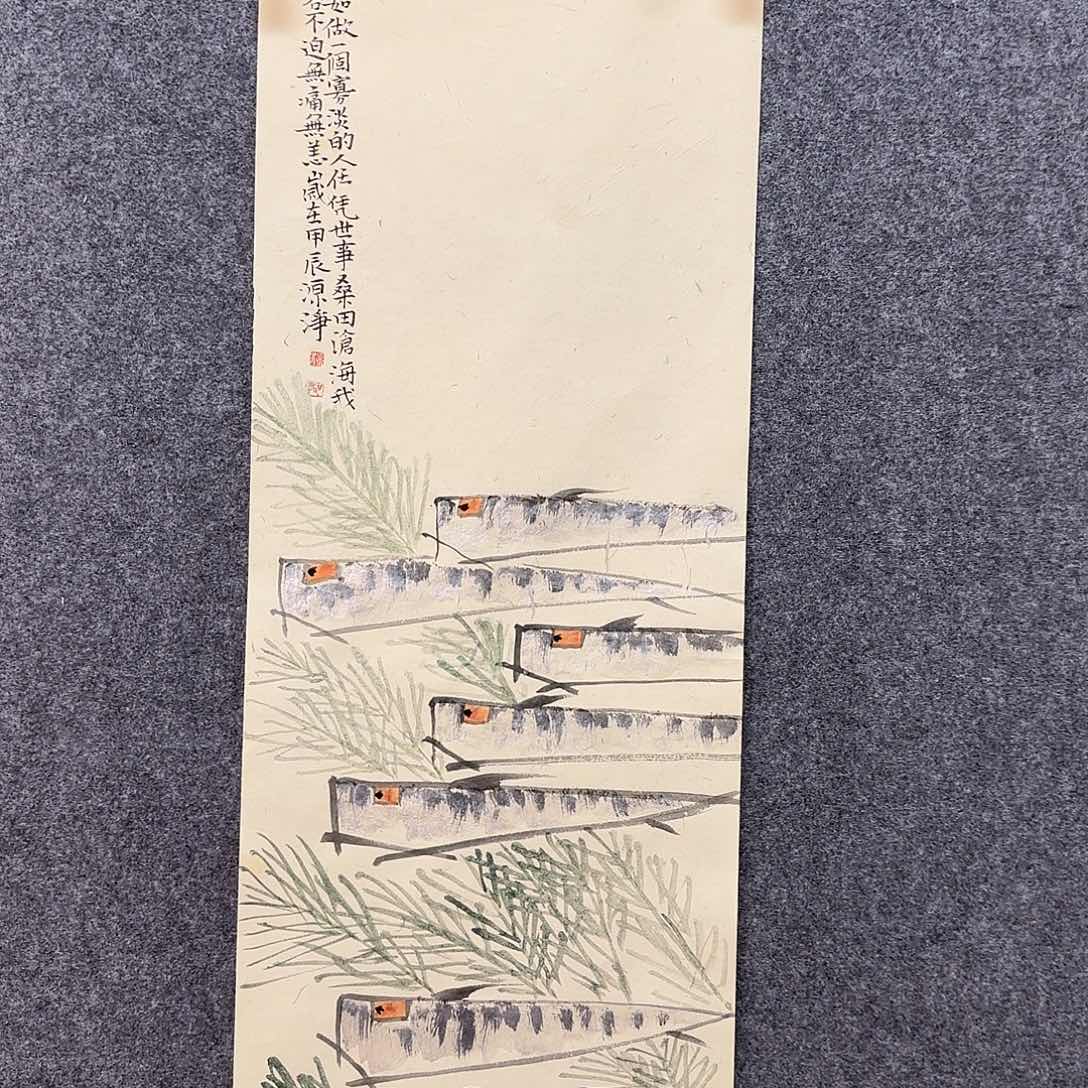 如做一個寡淡的人任凭世事桑田滄海我
不迫無痛無恙歲在甲辰源淨